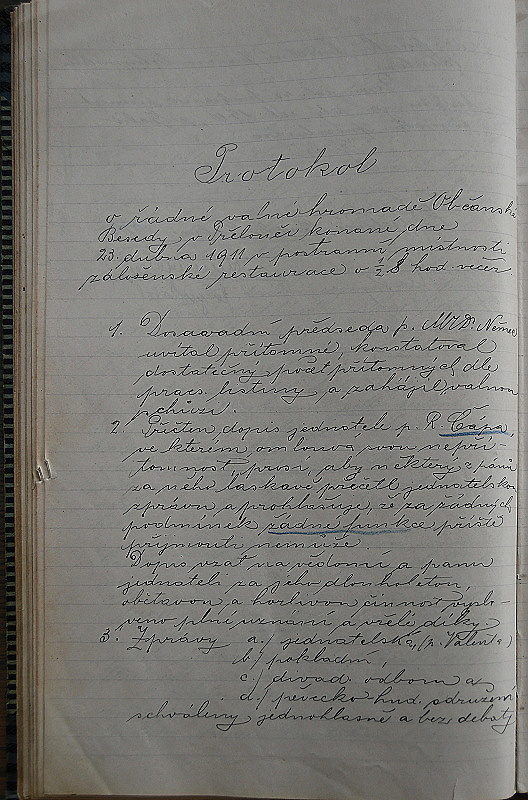 Protokol
o řádné valné hromadě Občanské
Besedy v Přelouči konané dne
23. dubna 1911 v postranní místnosti
záloženské restaurace o ½8 hod. večer.
1. Dosavadní předseda p. MUDr. Němec
uvítal přítomné, konstatoval
dostatečný počet přítomných dle
praes. listiny a zahájil valnou
schůzi.
2. Přečten dopis jednatele p. R. Čápa,
ve kterém omlouvá svou nepří-
tomnost, prosí, aby některý z pánů
za něho laskavě přečetl jednatelskou
zprávu a prohlašuje, že za žádných
podmínek žádné funkce příště
přijmouti nemůže.
Dopis vzat na vědomí a panu
jednateli za jeho dlouholetou,
obětavou a horlivou činnost vyslo-
veno plné uznání a vřelé díky.
3. Zprávy a./ jednatelská, (p. Valenta)
b./ pokladní,
c./ divad. odboru a
d./ pěvecko hud. sdružení
schváleny jednohlasně a bez debaty